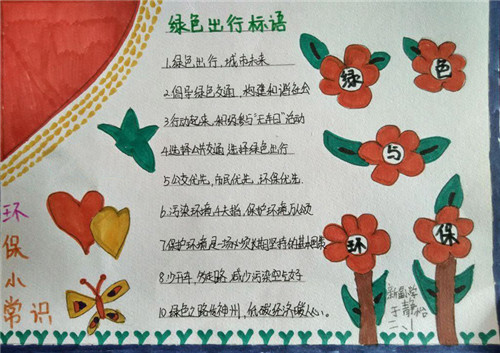 绿色出行标语
1.绿色出行,城市未来
2.倡导绿色交通,构建和谐社会
3.行动起来,积极参与“无车日”活动
4.选择公共交通 选择绿色出行
5.公交优先,市民优先,环保优先.
6.污染环境,千夫指,保护环境万人颂
7.保护环境是一场必须长期坚持的
8.少开车,多走路,减少污染空气好
10.绿色之路 神州,低碳经济暖人心。
绿
色
与
环
保
环
保
小
常识